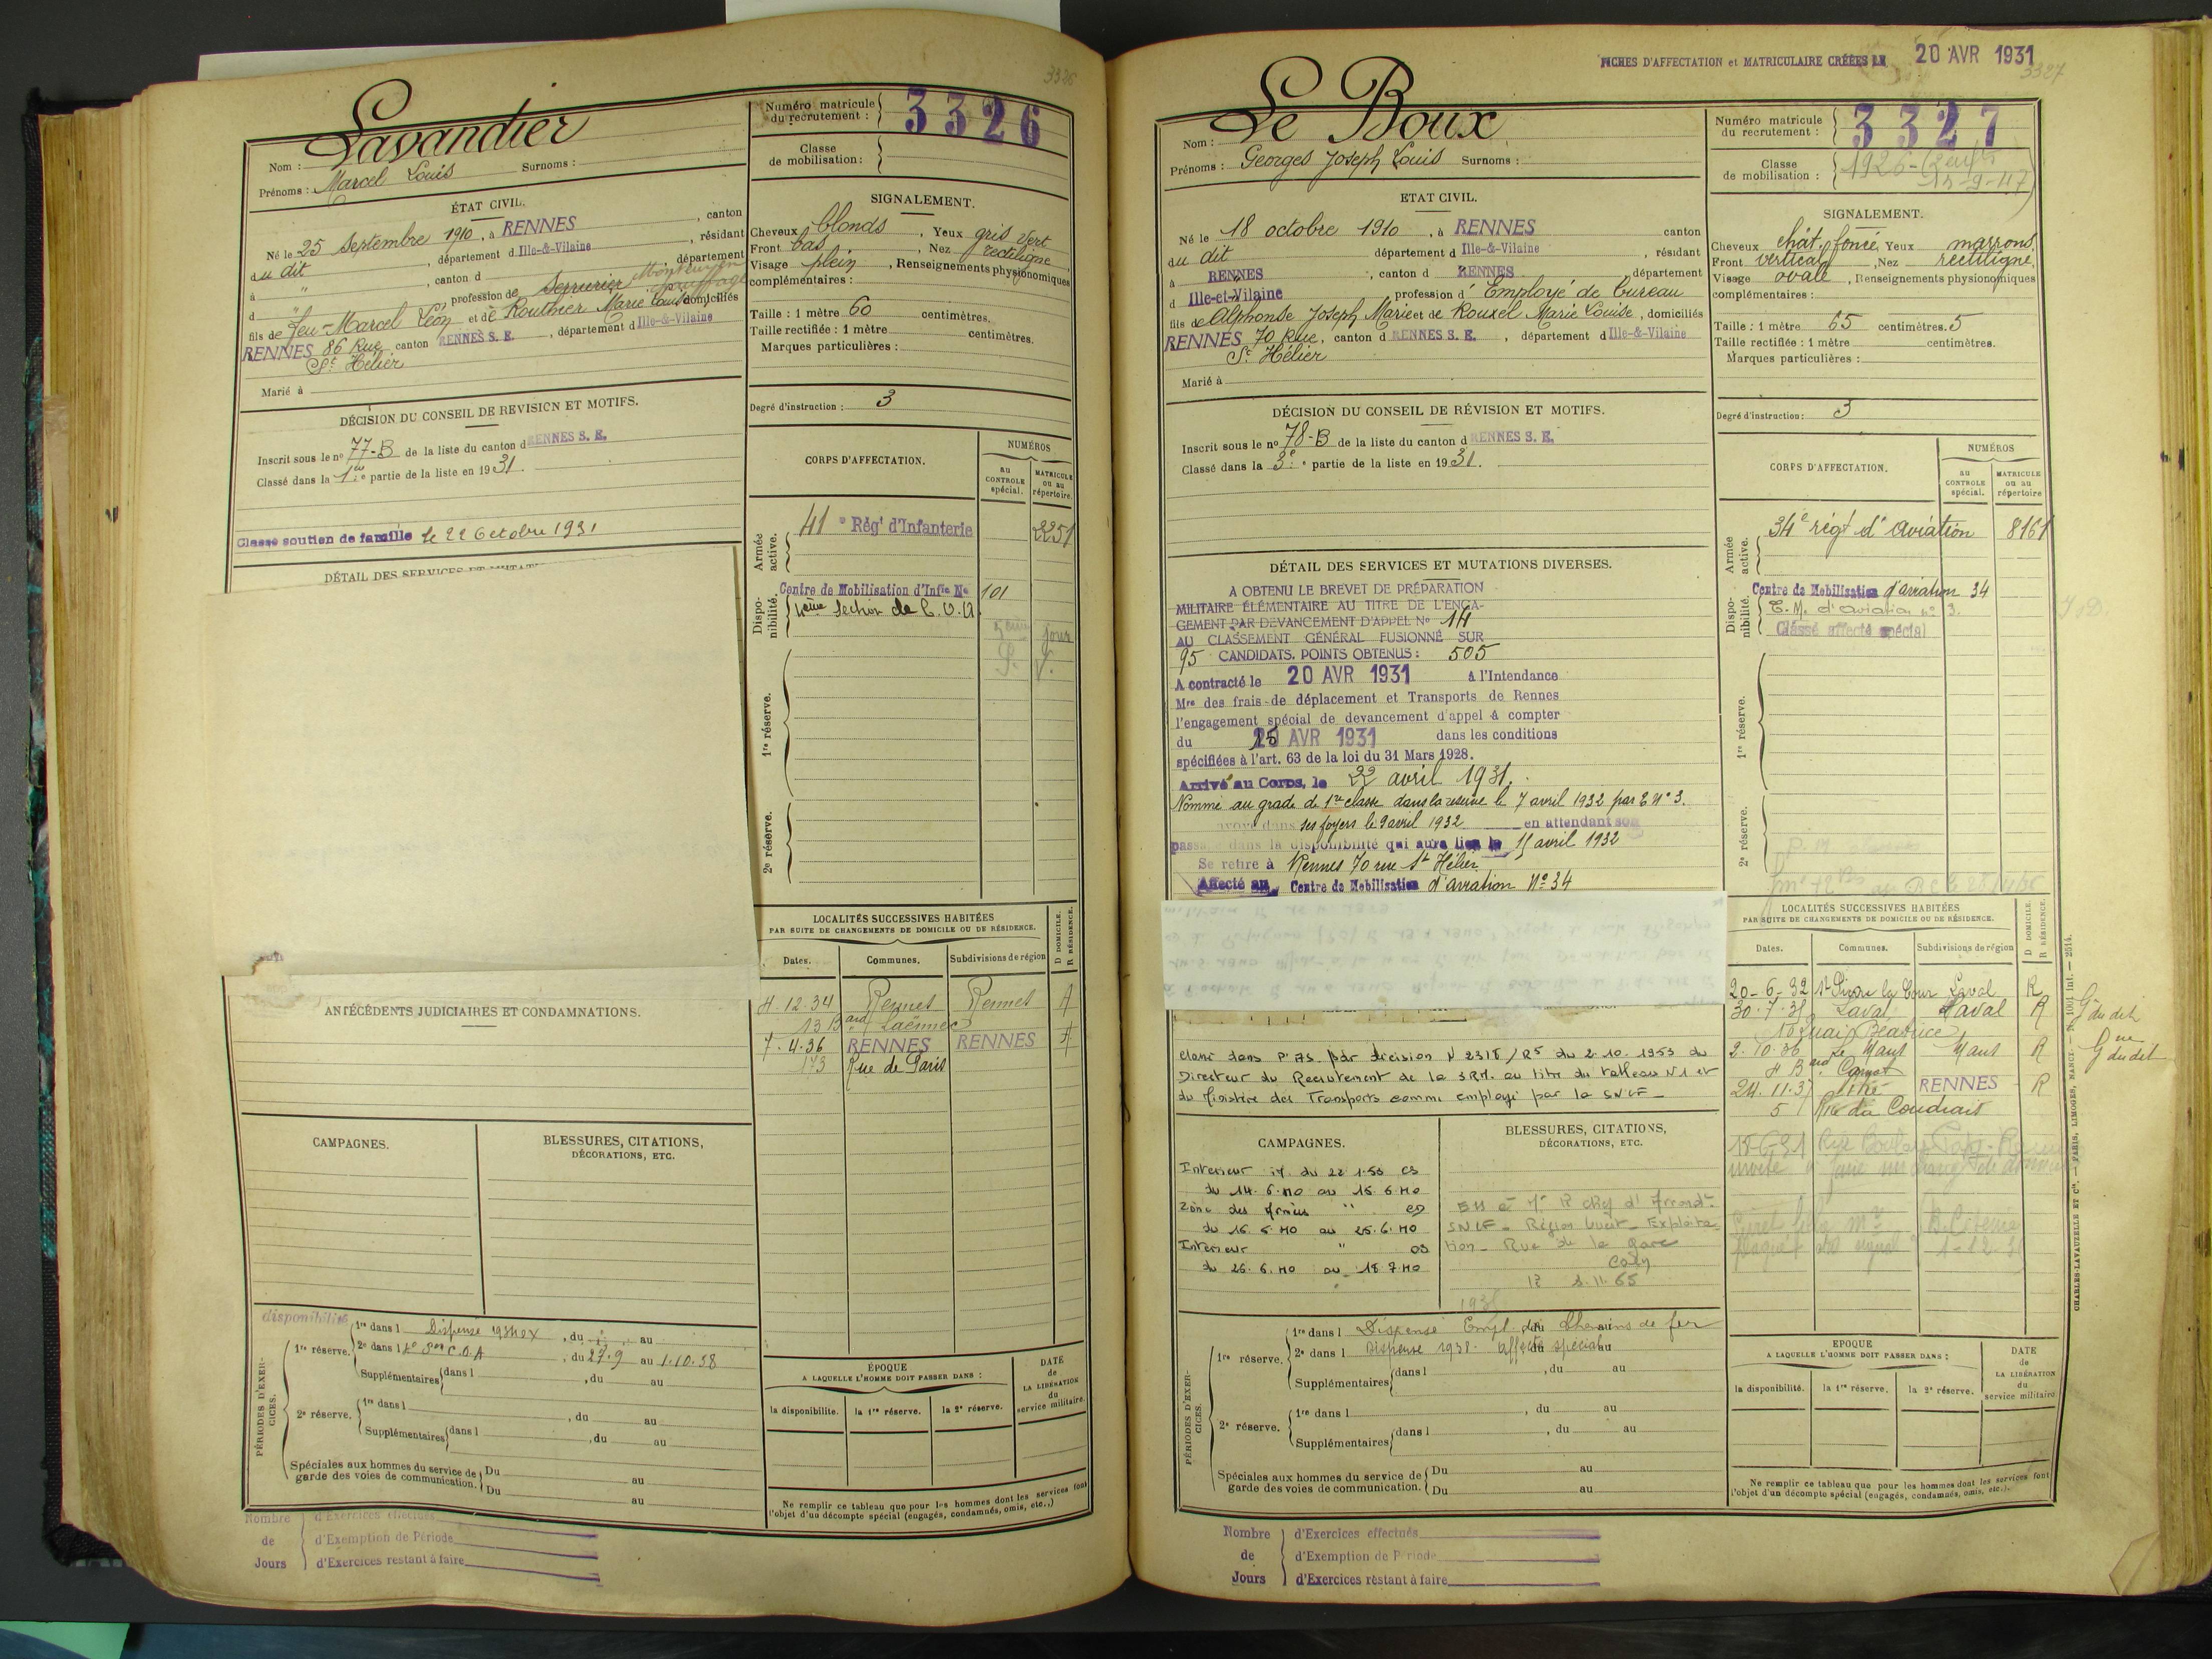 3326
Lavandier
Nom :
Prénoms : Marcel Louis Surnoms :
Numéro matricule du recrutement : 3326
Classe de mobilisation :
ÉTAT CIVIL.
Né le 25 septembre 1910, à RENNES, canton
du dit, département d Ille-&-Vilaine, résidant
à " , canton d , département
d " , profession de Serrurier
fils de feu-Marcel Léon et de Routhier Marie Louise domiciliés
RENNES 86 Rue canton RENNES S. E. , département d Ille-&-Vilaine
St Hélier
Marié à
SIGNALEMENT.
Cheveux blonds , Yeux gris vert
Front bas , Nez rectiligne
Visage plein , Renseignements physionomiques
complémentaires :
Taille : 1 mètre 60 centimètres.
Taille rectifiée : 1 mètre centimètres.
Marques particulières :
Degré d'instruction : 3
DÉCISION DU CONSEIL DE REVISION ET MOTIFS.
Inscrit sous le no 77-B de la liste du canton d RENNES S. E.
Classé dans la 1re partie de la liste en 1931.
Classé soutien de famille le 22 Octobre 1931
DÉTAIL DES SERVICES ET MUTAT
CORPS D'AFFECTATION.
NUMÉROS
au CONTROLE spécial.
MATRICULE ou au répertoire.
Armée active.
41e Régt d'Infanterie 2251
Disponibilité.
Centre de Mobilisation d'Infie No 101
4ème Section de C.O.A.
1re réserve.
2e réserve.
LOCALITÉS SUCCESSIVES HABITÉES
PAR SUITE DE CHANGEMENTS DE DOMICILE OU DE RÉSIDENCE.
Dates. Communes. Subdivisions de région D DOMICILE. R RÉSIDENCE.
4.12.34 Rennes Rennes
13 Bard Laënnec
7.4.36 RENNES RENNES
173 Rue de Paris
ANTÉCÉDENTS JUDICIAIRES ET CONDAMNATIONS.
CAMPAGNES.
BLESSURES, CITATIONS,
DÉCORATIONS, ETC.
disponibilité
PÉRIODES D'EXERCICES.
1re réserve.
1re dans l Dispense , du au
2e dans l C.O.A , du 27.9 au 1.10.38
Supplémentaires dans l , du au
2e réserve.
1re dans l , du au
Supplémentaires dans l , du au
Spéciales aux hommes du service de garde des voies de communication.
Du au
Du au
ÉPOQUE
A LAQUELLE L'HOMME DOIT PASSER DANS :
la disponibilité. la 1re réserve. la 2e réserve.
DATE de LA LIBÉRATION du service militaire.
Ne remplir ce tableau que pour les hommes dont les services font
l'objet d'un décompte spécial (engagés, condamnés, omis, etc.,)
Nombre de Jours
d'Exercices effectués
d'Exemption de Période
d'Exercices restant à faire
FICHES D'AFFECTATION et MATRICULAIRE CRÉÉES LE 20 AVR 1931
3327
Le Boux
Nom :
Prénoms : Georges Joseph Louis Surnoms :
Numéro matricule du recrutement : 3327
Classe de mobilisation : 1926
ETAT CIVIL.
Né le 18 octobre 1910 , à RENNES canton
du dit département d Ille-&-Vilaine , résidant
à RENNES , canton d RENNES , département
d Ille-et-Vilaine , profession d'Employé de bureau
fils de Alphonse Joseph Marie et de Rouxel Marie Louise , domiciliés
RENNES 70 Rue , canton d RENNES S. E. , département d Ille-&-Vilaine
St Hélier
Marié à
SIGNALEMENT.
Cheveux chât. foncé Yeux marrons
Front vertical , Nez rectiligne
Visage ovale , Renseignements physionomiques
complémentaires :
Taille : 1 mètre 65 centimètres. 5
Taille rectifiée : 1 mètre centimètres.
Marques particulières :
Degré d'instruction : 3
DÉCISION DU CONSEIL DE RÉVISION ET MOTIFS.
Inscrit sous le no 78-B de la liste du canton d RENNES S. E.
Classé dans la 3e partie de la liste en 1931.
DÉTAIL DES SERVICES ET MUTATIONS DIVERSES.
A OBTENU LE BREVET DE PRÉPARATION
MILITAIRE ÉLÉMENTAIRE AU TITRE DE L'ENGA-
GEMENT PAR DEVANCEMENT D'APPEL No 14
AU CLASSEMENT GÉNÉRAL FUSIONNÉ SUR
95 CANDIDATS. POINTS OBTENUS : 505
A contracté le 20 AVR 1931 à l'Intendance
Mre des frais de déplacement et Transports de Rennes
l'engagement spécial de devancement d'appel à compter
du 15 AVR 1931 dans les conditions
spécifiées à l'art. 63 de la loi du 31 Mars 1928.
Arrivé au Corps, le 22 avril 1931.
Nommé au grade de 1re classe dans la réserve le 7 avril 1932 par No 3.
ses foyers le 9 avril 1932 en attendant son
passage dans la disponibilité qui aura lieu le 15 avril 1932
Se retire à Rennes 70 rue St Hélier
Affecté au Centre de Mobilisation d'aviation No 34
Classé dans l'A.S. par décision N 2318/RS du 2.10.1953 du
Directeur du Recrutement de la 3RM. au titre du tableau N1 et
du Ministère des Transports comme employé par la SNCF
CORPS D'AFFECTATION.
NUMÉROS
au CONTROLE spécial.
MATRICULE ou au répertoire
Armée active.
34e régt d'aviation 8161
Disponibilité.
Centre de Mobilisation d'aviation 34
C. M. d'aviation no 3.
Classé affecté spécial
1re réserve.
2e réserve.
LOCALITÉS SUCCESSIVES HABITÉES
PAR SUITE DE CHANGEMENTS DE DOMICILE OU DE RÉSIDENCE.
Dates. Communes. Subdivisions de région D DOMICILE. R RÉSIDENCE.
20-6-32 St Pierre la Cour Laval R
30.7.35 Laval Laval R Gie du dit
Quai Béatrice
2.10.36 Le Mans Mans R
4 Bard Carnot
24.11.37 Vitré RENNES R
5 Rue du Coudrais
CAMPAGNES.
Interieur
du 14.6.40 au 15.6.40
Zône des Armées "
du 16.6.40 au 25.6.40
Interieur "
du 26.6.40 au 18.7.40
BLESSURES, CITATIONS,
DÉCORATIONS, ETC.
SNCF - Région Ouest - Exploita-
tion - Rue de la Gare
Caen
PÉRIODES D'EXERCICES.
1re réserve.
1re dans l Dispensé Empl. des Chemins de fer
2e dans l Dispense 1938. affecté spécial au
Supplémentaires dans l , du au
2e réserve.
1re dans l , du au
Supplémentaires dans l , du au
Spéciales aux hommes du service de garde des voies de communication.
Du au
Du au
EPOQUE
A LAQUELLE L'HOMME DOIT PASSER DANS :
la disponibilité. la 1re réserve. la 2e réserve.
DATE de LA LIBÉRATION du service militaire
Ne remplir ce tableau que pour les hommes dont les services font
l'objet d'un décompte spécial (engagés, condamnés, omis, etc.).
CHARLES-LAVAUZELLE ET Cie. — PARIS, LIMOGES, NANCY.
Nombre de Jours
d'Exercices effectués
d'Exemption de Période
d'Exercices restant à faire